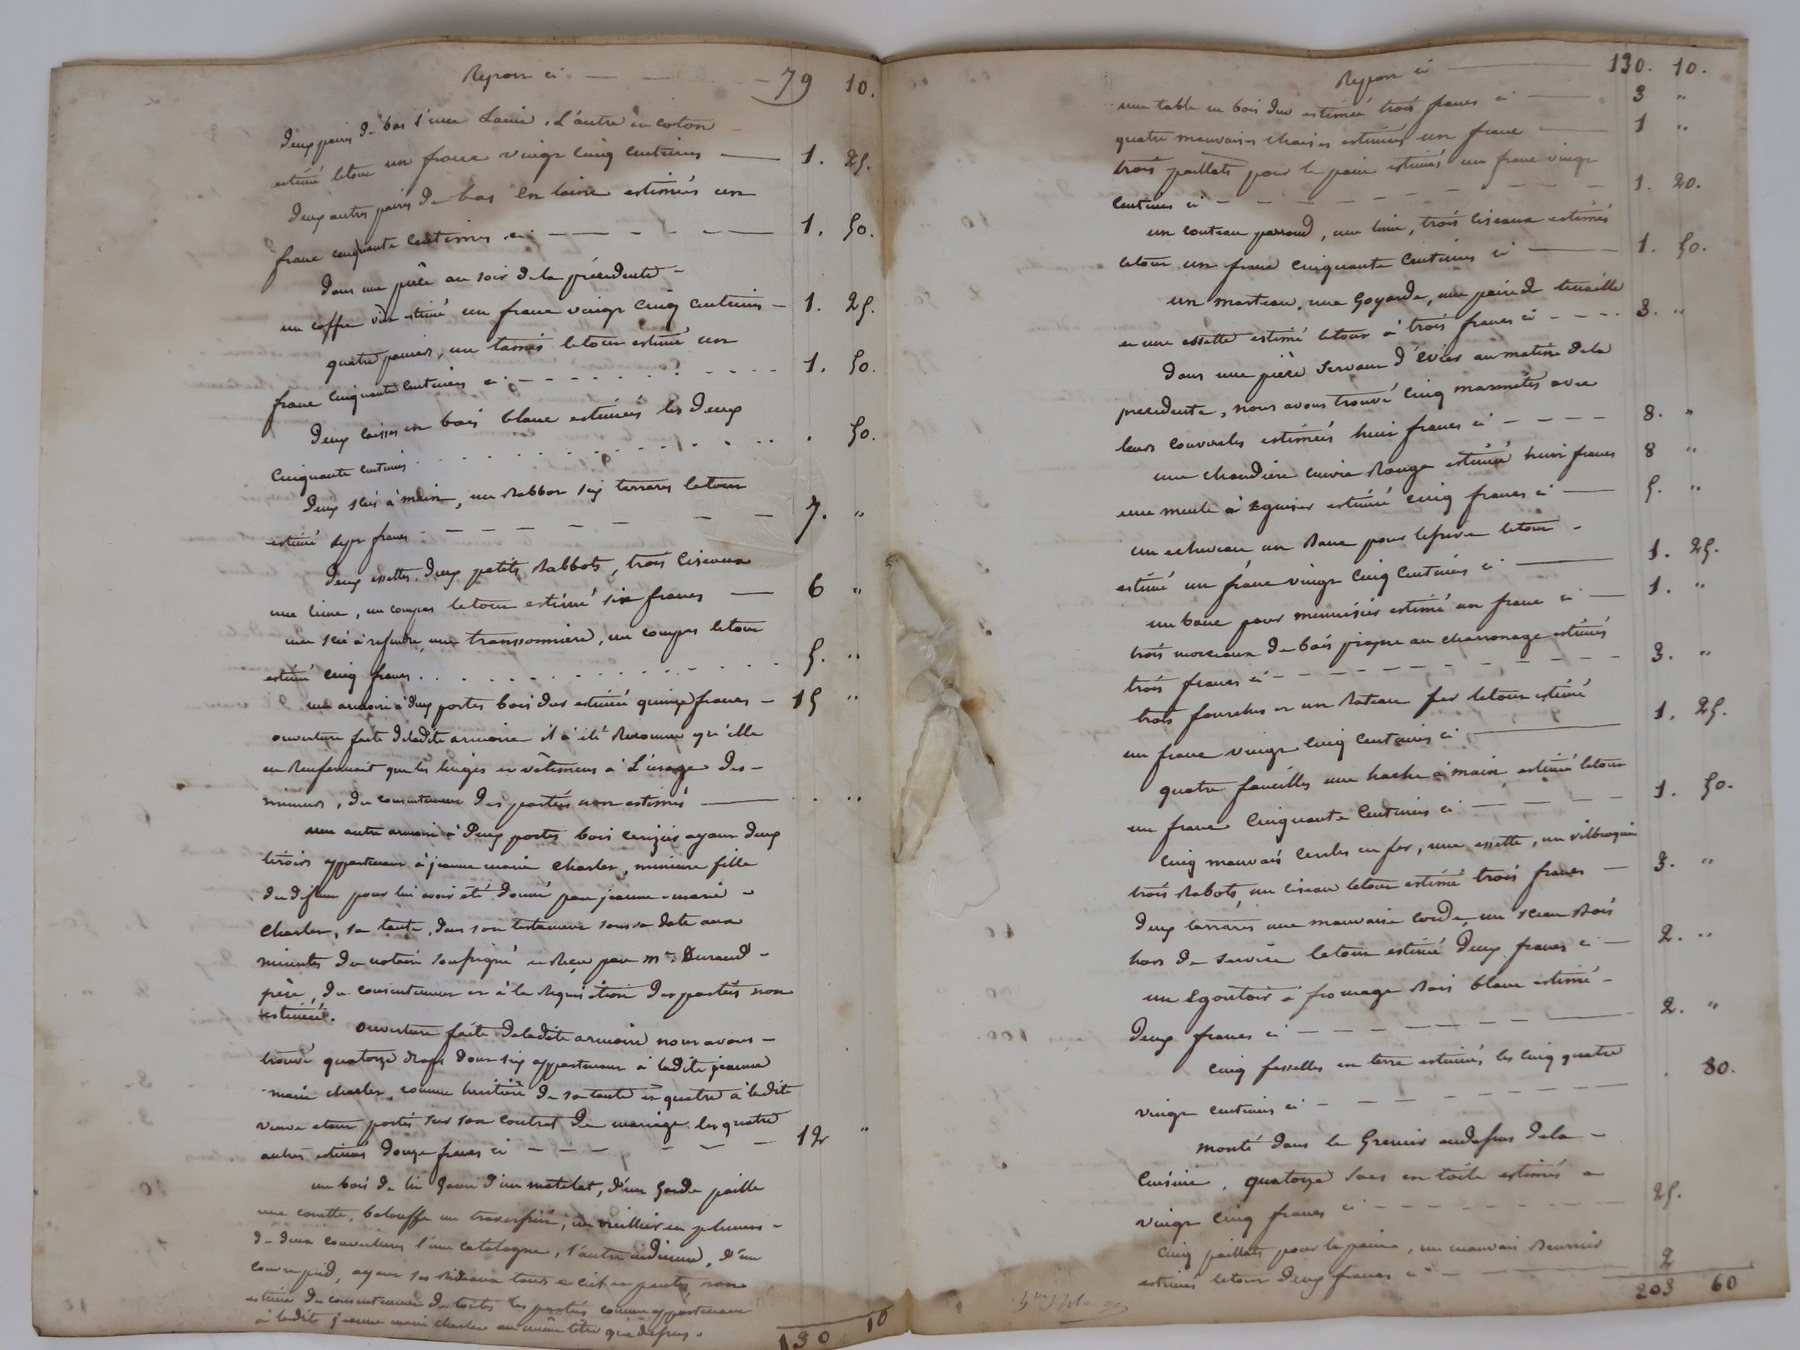 Report ci — 79 10.
deux paires de bas l'une Laine, L'autre en coton
estimé letout un franc vingt cinq centimes — 1. 25.
deux autres paires de bas en laine estimés un
franc cinquante centimes ci — 1. 50.
dans une pièce au soir de la précédente —
un coffre vide estimé un franc vingt cinq centimes — 1. 25.
quatre paniers, un tamis letout estimé un
franc cinquante centimes ci - - - 1. 50.
deux caisses en bois blanc estimées les deux
cinquante centimes . . . . 50.
deux scies à main, un Rabbot six tarrares letout
estimé sept francs — 7. "
deux essettes, deux petits Rabbots, trois ciseaux
une lime, un compas letout estimé six francs — 6 "
une scie à refendre, une transonnière, un compas letout
estimé cinq francs . . . . 5. "
une armoire à deux portes bois dur estimé quinze francs — 15 "
ouverture faite deladite armoire il a été Reconnu qu'elle
ne Renfermait que les linges et vêtemens à L'usage des —
mineurs, du consentement des parties non estimés — . . "
une autre armoire à deux portes bois cerizier ayant deux
tiroirs appartenant à jeanne marie charles, mineure fille
du defunt pour lui avoir été donné par jeanne marie —
charles, sa tante, dans son testament sous sa date aux
minutes du notaire soussigné et Reçu par me Durand —
père, du consentement et à la Requisition des parties non
estimée. ouverture faite deladite armoire nous avons —
trouvé quatorze draps dont six appartenant à ladite jeanne
marie charles, comme heritière de sa tante et quatre à ladite
veuve étant portés sur son contrat de mariage les quatre
autres estimés douze francs ci — 12 "
un bois de lit garni d'un matelat, d'un garde paille
une couette, balouffe un traversier, un oreiller en plumes —
de deux couvertures l'une catalogne, l'autre indienne, d'un
couvre pied, ayant ses Rideaux non
estimé du consentement de toutes les parties comme appartenant
à ladite jeanne marie charles au même titre que dessus.
130 10
Report ci — 130. 10.
une table en bois dur estimée trois francs ci — 3 "
quatre mauvaises chaises estimées un franc — 1 "
trois paillats pour le pain estimés un franc vingt
centimes ci — 1. 20.
un couteau parroud, une lime, trois ciseaux estimés
letout un franc cinquante centimes ci — 1. 50.
un marteau, une Goyarde, une paire de tenaille
et une essette estimé letout à trois francs ci - - - 3. "
dans une pièce servant d'évier au matin dela
precedente, nous avons trouvé cinq marmites avec
leurs couvercles estimées huit francs ci — 8. "
une chaudière cuivre Rouge estimée huit francs 8 "
une meule à Eguiser estimée cinq francs ci — 5. "
un echeveau un banc pour lessive letout —
estimé un franc vingt cinq centimes ci — 1. 25.
un banc pour menuisier estimé un franc ci — 1. "
trois morceaux de bois propre au charronage estimés
trois francs ci — 3. "
trois fourches et un Rateau fer letout estimé
un franc vingt cinq centimes ci — 1. 25.
quatre faucilles une hache à main estimé letout
un franc cinquante centimes ci — 1. 50.
cinq mauvais cercles en fer, une essette, un vilbrequin
trois Rabots, un ciseau letout estimé trois francs — 3. "
deux tarrares une mauvaise corde, un sceau Bois
hors de service letout estimé deux francs ci — 2. "
un Egoutoir à fromage Bois blanc estimé —
deux francs ci — 2. "
cinq fesselles en terre estimées les cinq quatre
vingt centimes ci — . 80.
monté dans le Grenier audessus dela —
cuisine, quatorze sacs en toile estimés a
vingt cinq francs ci — 25.
cinq paillats pour le pain, un mauvais
estimés letout deux francs ci — 2
203 60